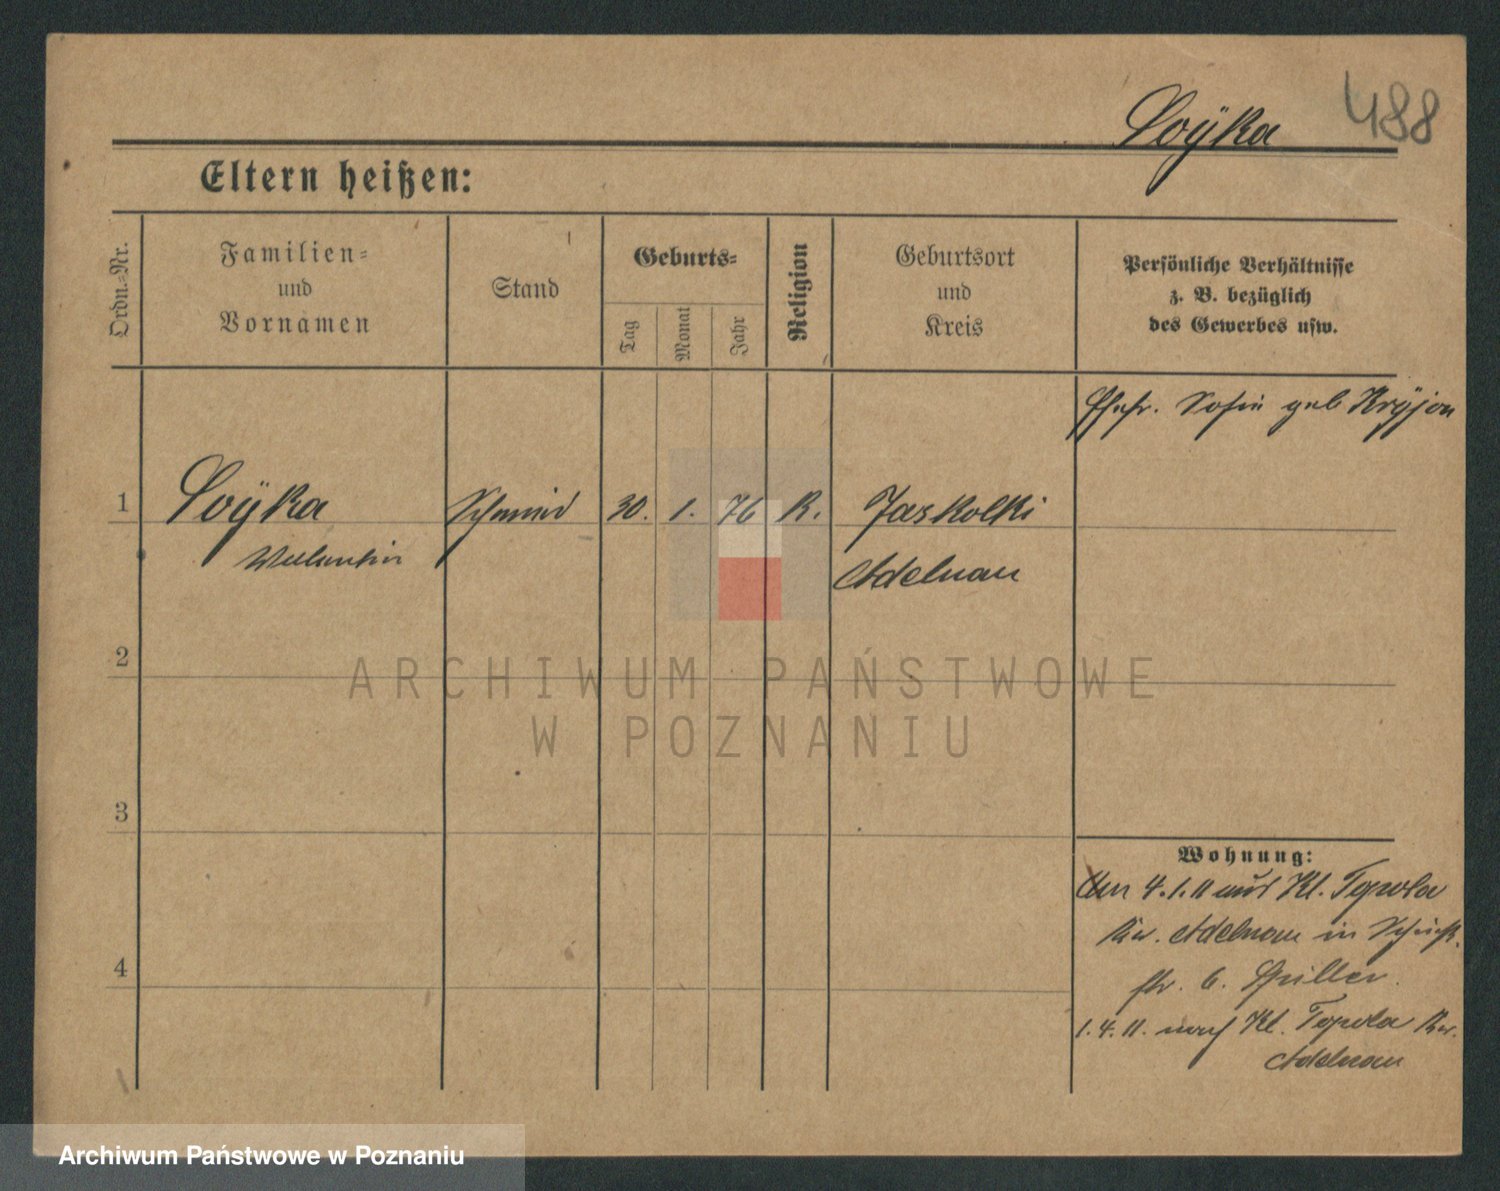 488
Soÿka
Eltern heißen:
Ordn.-Nr.
Familien-
und
Vornamen
Stand
Geburts-
Tag
Monat
Jahr
Religion
Geburtsort
und
Kreis
Persönliche Verhältnisse
z. B. bezüglich
des Gewerbes usw.
Ehefr. Sofie geb
1
Soÿka
Schmied
30.
1.
76
K.
Jaskolki
Valentin
Adelnau
2
ARCHIWUM PAŃSTWOWE
W POZNANIU
3
Wohnung:
Am 4.1.11 aus Kl. Topola
Kr. Adelnau in
str. 6.
4
1.4.11. nach Kl. Topola Kr.
Adelnau
Archiwum Państwowe w Poznaniu